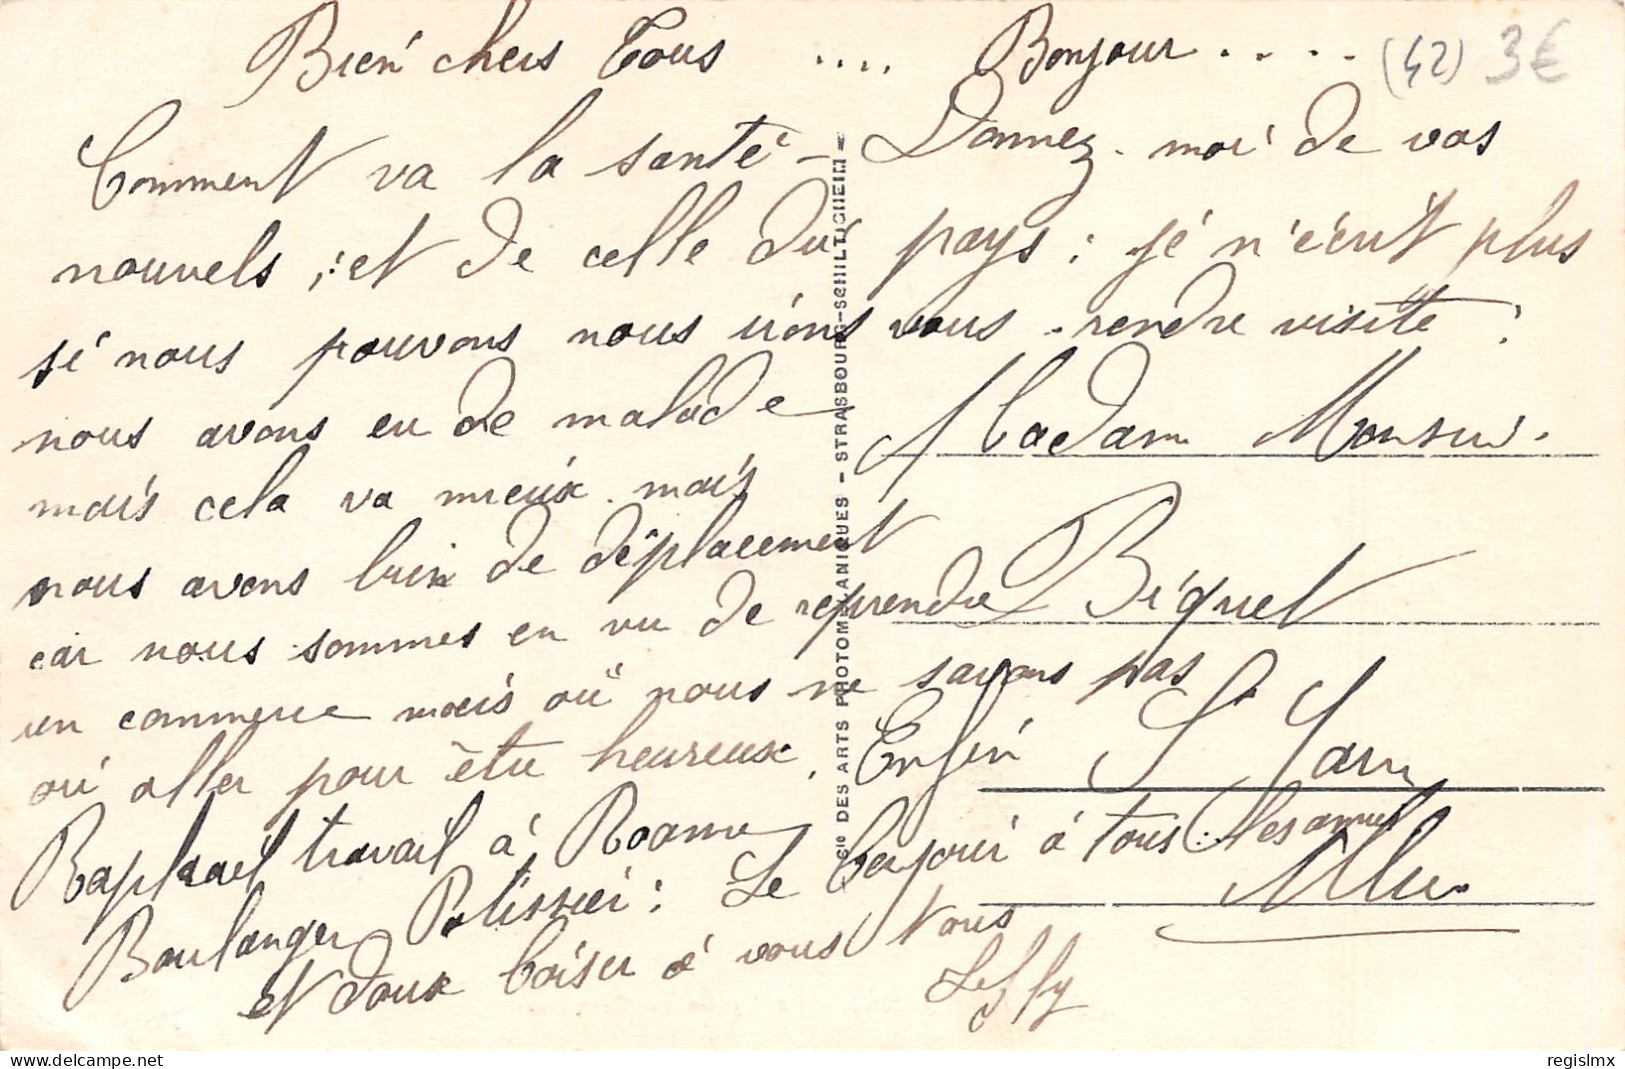 Bien chers Tous .... Bonjour .... (42) 3€
Comment va la santé - Donnez-moi de vos
nouvels ; et de celle du pays : je n'écrit plus
si nous pouvons nous irons vous rendre visite :
nous avons eu de malade
mais cela va mieux. mais
nous avons bien de déplacement
car nous sommes en vu de reprendre
un commerce mais où nous ne savons pas
où aller pour être heureux. Enfin
Raphael travail à Roanne
Boulanger Patissier : Le bonjour à tous les amis
et doux baiser à vous tous
Madam Monsieur
Biquet
Cie DES ARTS PHOTOMECANIQUES - STRASBOURG-SCHILTIGHEIM
delcampe.net
regislmx